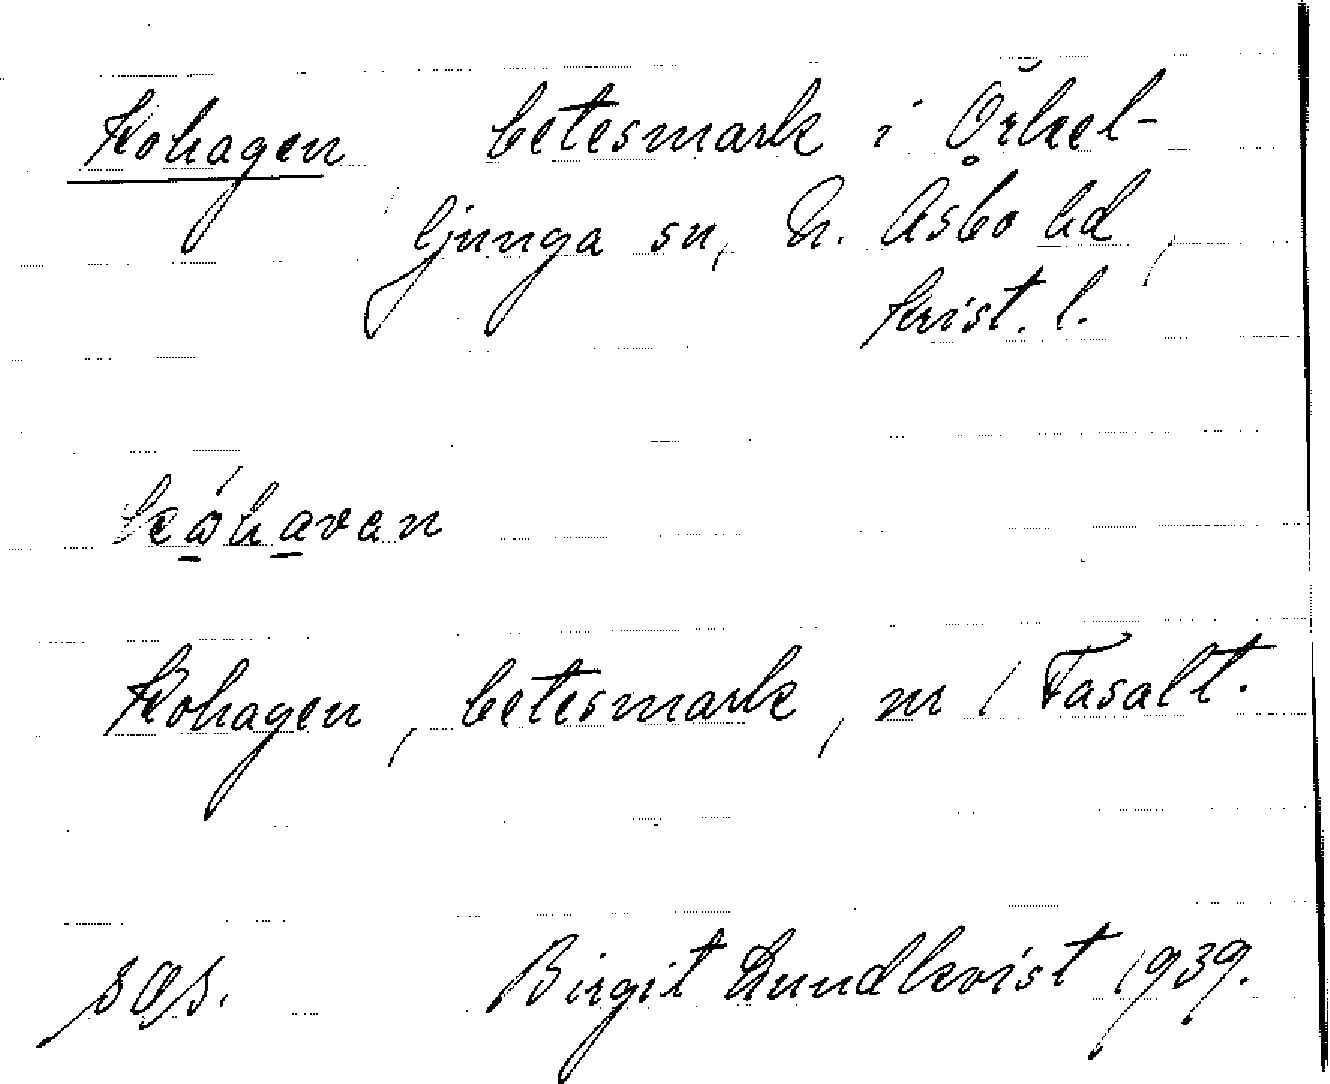 Kohagen betesmark i Örkel-
ljunga sn, N. Åsbo hd,
Krist. l.
Kohagen, betesmark, m / Fasalt.
s O s. Birgit Lundkvist 1939.